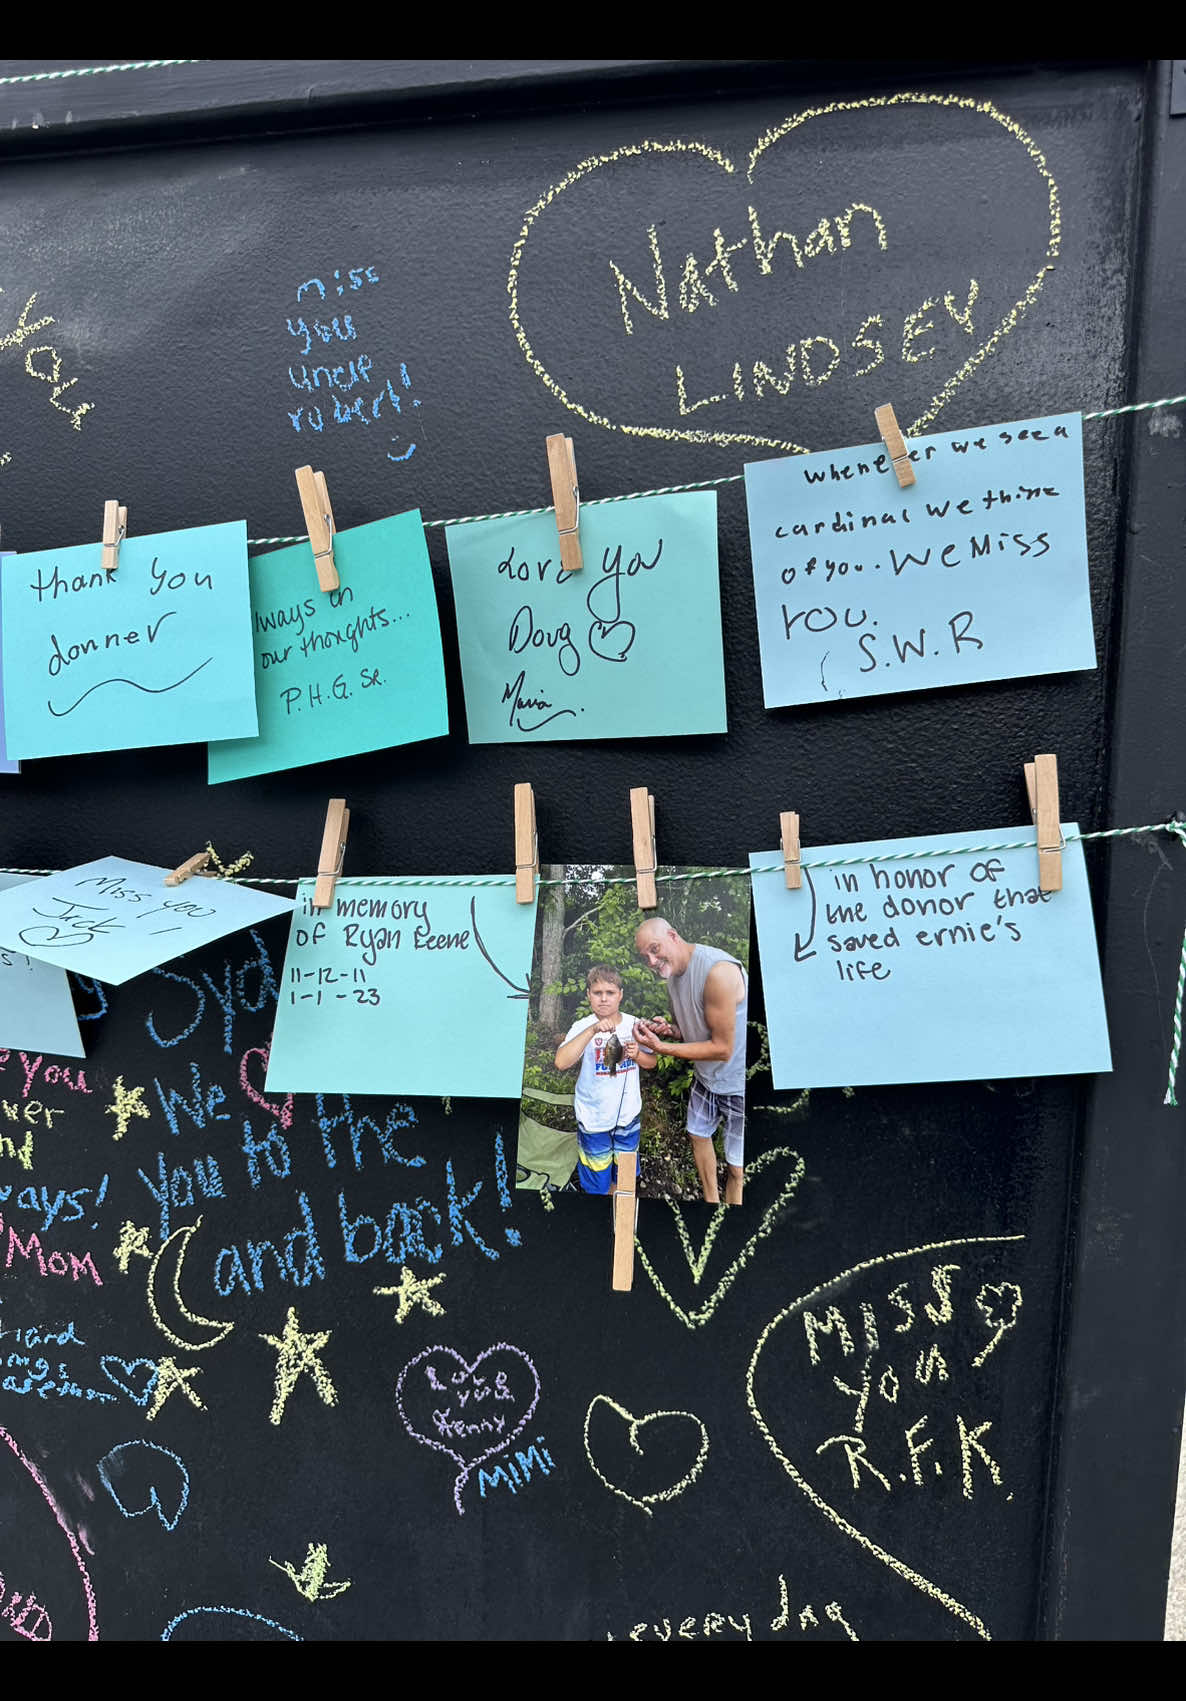 You
miss
you
uncle
robert!
Nathan
LINDSEY
thank you
donner
lways in
our thoughts...
P.H.G. Sr.
Love you
Doug
Maria
whenever we see a
cardinal we think
of you. We Miss
You.
S.W.R
Miss you
Jack
in memory
of Ryan Keene
11-12-11
1-1-23
in honor of
the donor that
saved ernie's
life
Syd
We
you to the
and back!
you
ways!
Mom
Love
you
Henny
MiMi
MISS
you
R.F.K.
every day